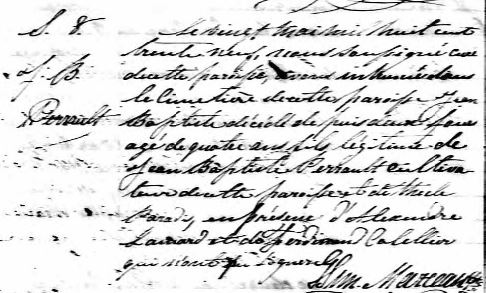 S. 8
J. B.
Perrault
Le vingt mai mil huit cent
trente neuf, nous soussigné curé
de cette paroisse, avons inhumé dans
le cimetière de cette paroisse Jean
Baptiste décédé depuis deux jours
agé de quatre ans fils légitime de
Jean Baptiste Perrault cultiva
teur de cette paroisse et de
Parade, en présence d'Alexandre
et de Ferdinand
qui n'ont pu signer.